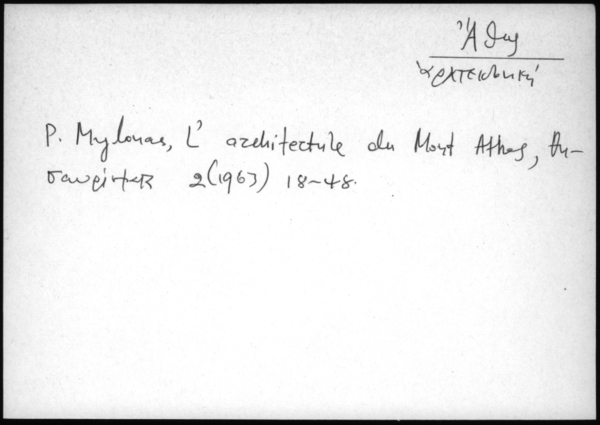 Ἄθως
ἀρχιτεκτονική
P. Mylonas, L' architecture du Mont Athos, Θη-
σαυρίσματα 2(1963) 18-48.